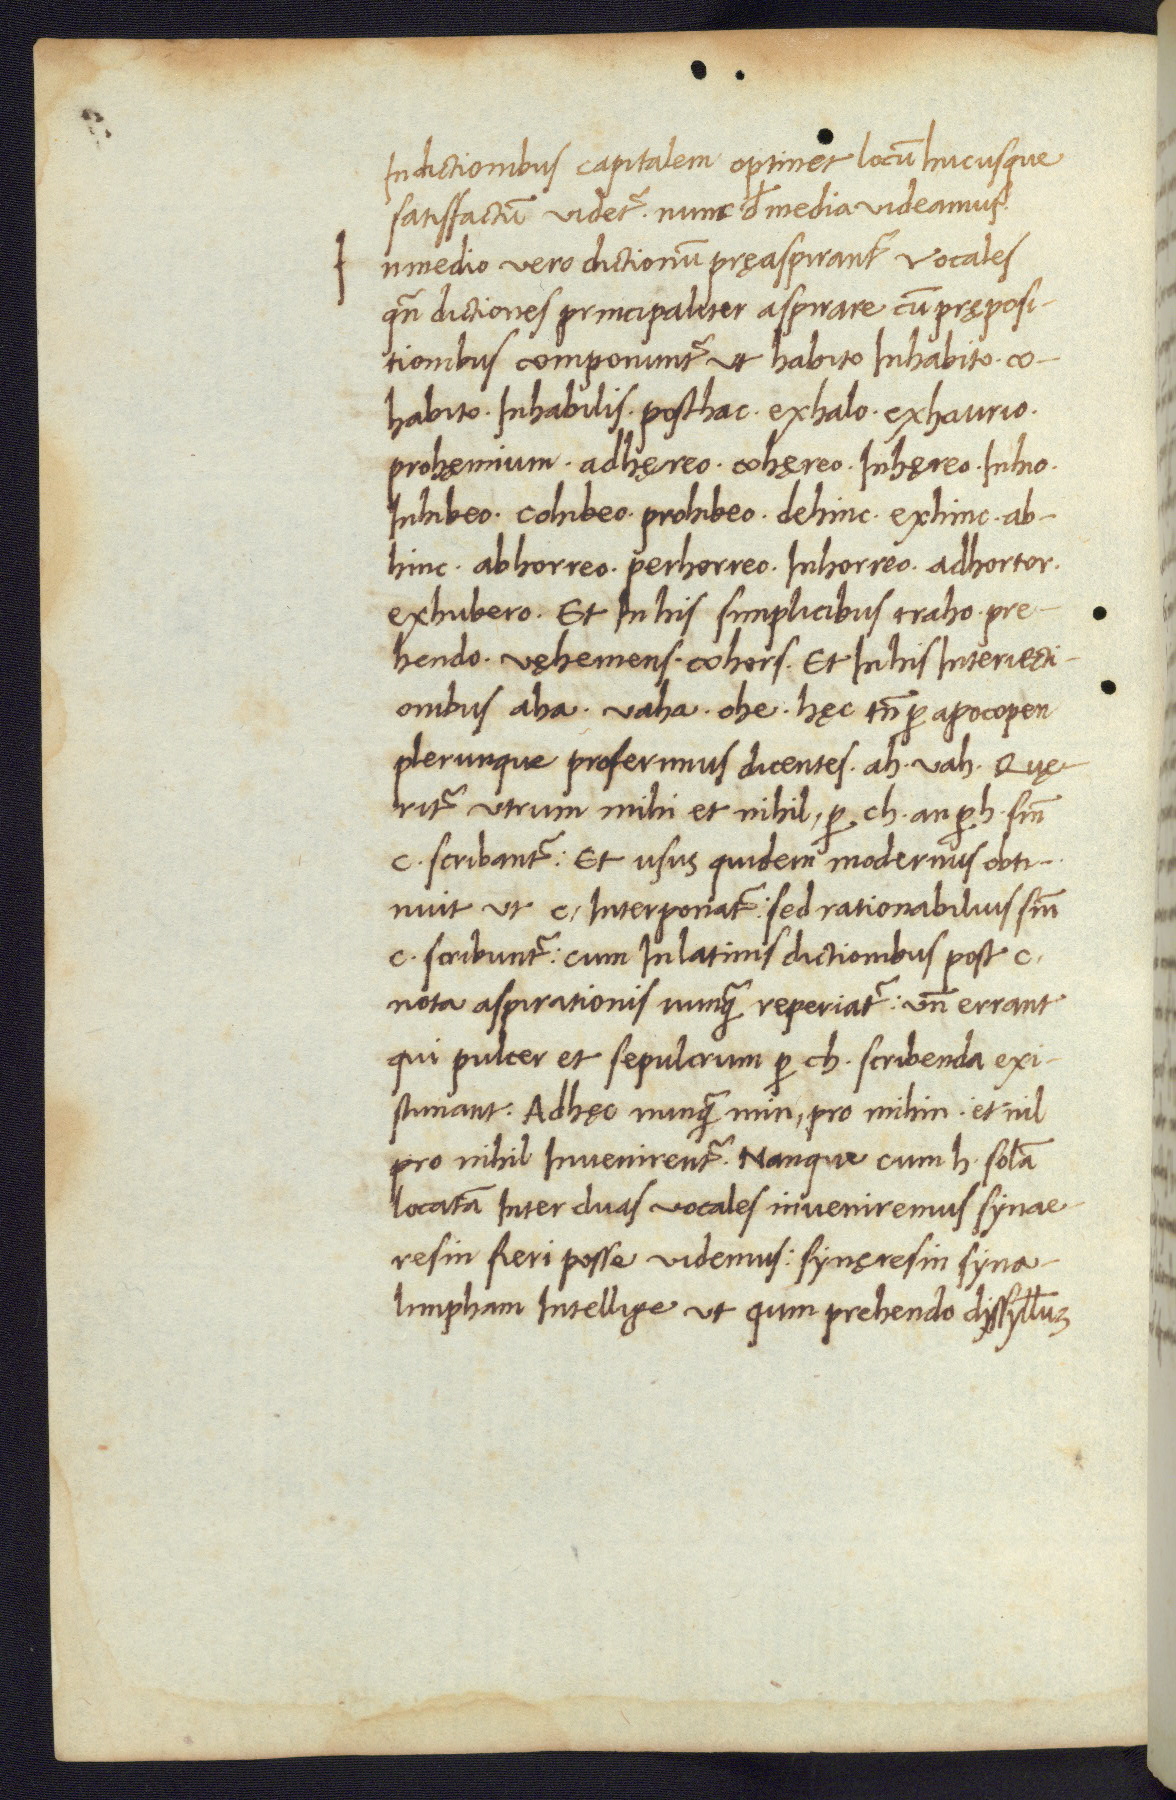 In dictionibus capitalem optinet locū hucusque
satisfactū videt᷑. nunc d̄ media videamus.
In medio vero dictionū pręaspirant᷑ vocales
qn̄ dictiones principaliter aspirare cū pręposi-
tionibus componunt᷑ ut habito Inhabito. co-
habito. Inhabilis. posthac. exhalo. exhaurio.
prohęmium. adhęreo. cohęreo. Inhęreo. Inhio.
Inhibeo. cohibeo. prohibeo. dehinc. exhinc. ab-
hinc. abhorreo. perhorreo. Inhorreo. adhortor.
exhubero. Et In his simplicibus traho. pre-
hendo. vęhemens. cohors. Et In his Interiecti-
onibus aha. vaha. ohe. hęc tn̄ ꝑ apocopen
plerunque proferimus dicentes. ah. vah. Quę-
rit᷑ utrum mihi et nihil, ꝑ ch. an ꝑ h. sin̄
c. scribant᷑: Et usus quidem modernus obti-
nuit ut c, Interponat᷑: sed rationabilius sin̄
c. scribunt᷑: cum In latinis dictionibus post c,
nota aspirationis nunꝗ̄ reperiat᷑: un̄ errant
qui pulcer et sepulcrum ꝑ ch. scribenda exi-
stimant. Adhęc nunꝗ̄ min, pro mihin. et nil
pro nihil Invenirent᷑. Nanque cum h. solā
locatā Inter duas vocales inveniremus synae-
resin fieri posse videmus: synęresin syna-
limpham Intellige ut qum prehendo dissyll̄uʒ